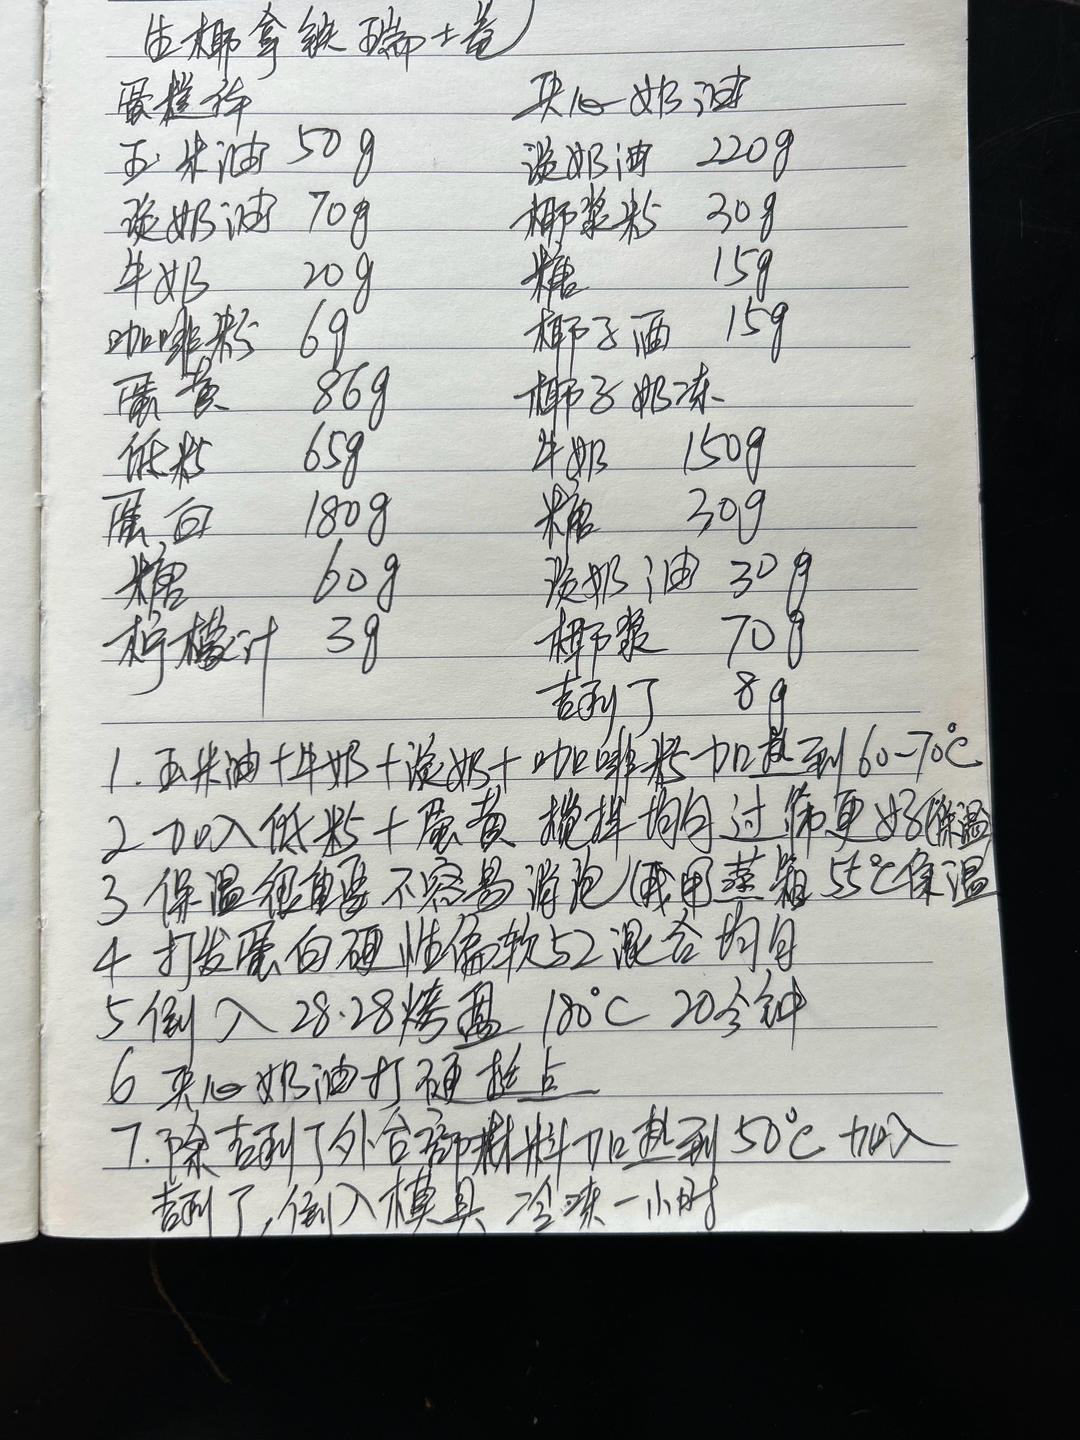 生椰拿铁瑞士卷
蛋糕体
玉米油 50g
淡奶油 70g
牛奶 20g
咖啡粉 6g
蛋黄 86g
低粉 65g
蛋白 180g
糖 60g
柠檬汁 3g
夹心奶油
淡奶油 220g
椰浆粉 30g
糖 15g
椰子酒 15g
椰子奶冻
牛奶 150g
糖 30g
淡奶油 30g
椰浆 70g
吉利丁 8g
1.玉米油+牛奶+淡奶+咖啡粉加热到60-70℃
2 加入低粉+蛋黄 搅拌均匀过筛更好(保温)
3 保温很重要不容易消泡(我用蒸箱55℃保温
4 打发蛋白硬性偏软52混合均匀
5 倒入28.28烤盘 180℃ 20分钟
6 夹心奶油打硬挺点
7.除吉利丁外全部材料加热到50℃加入
吉利丁,倒入模具 冷冻一小时